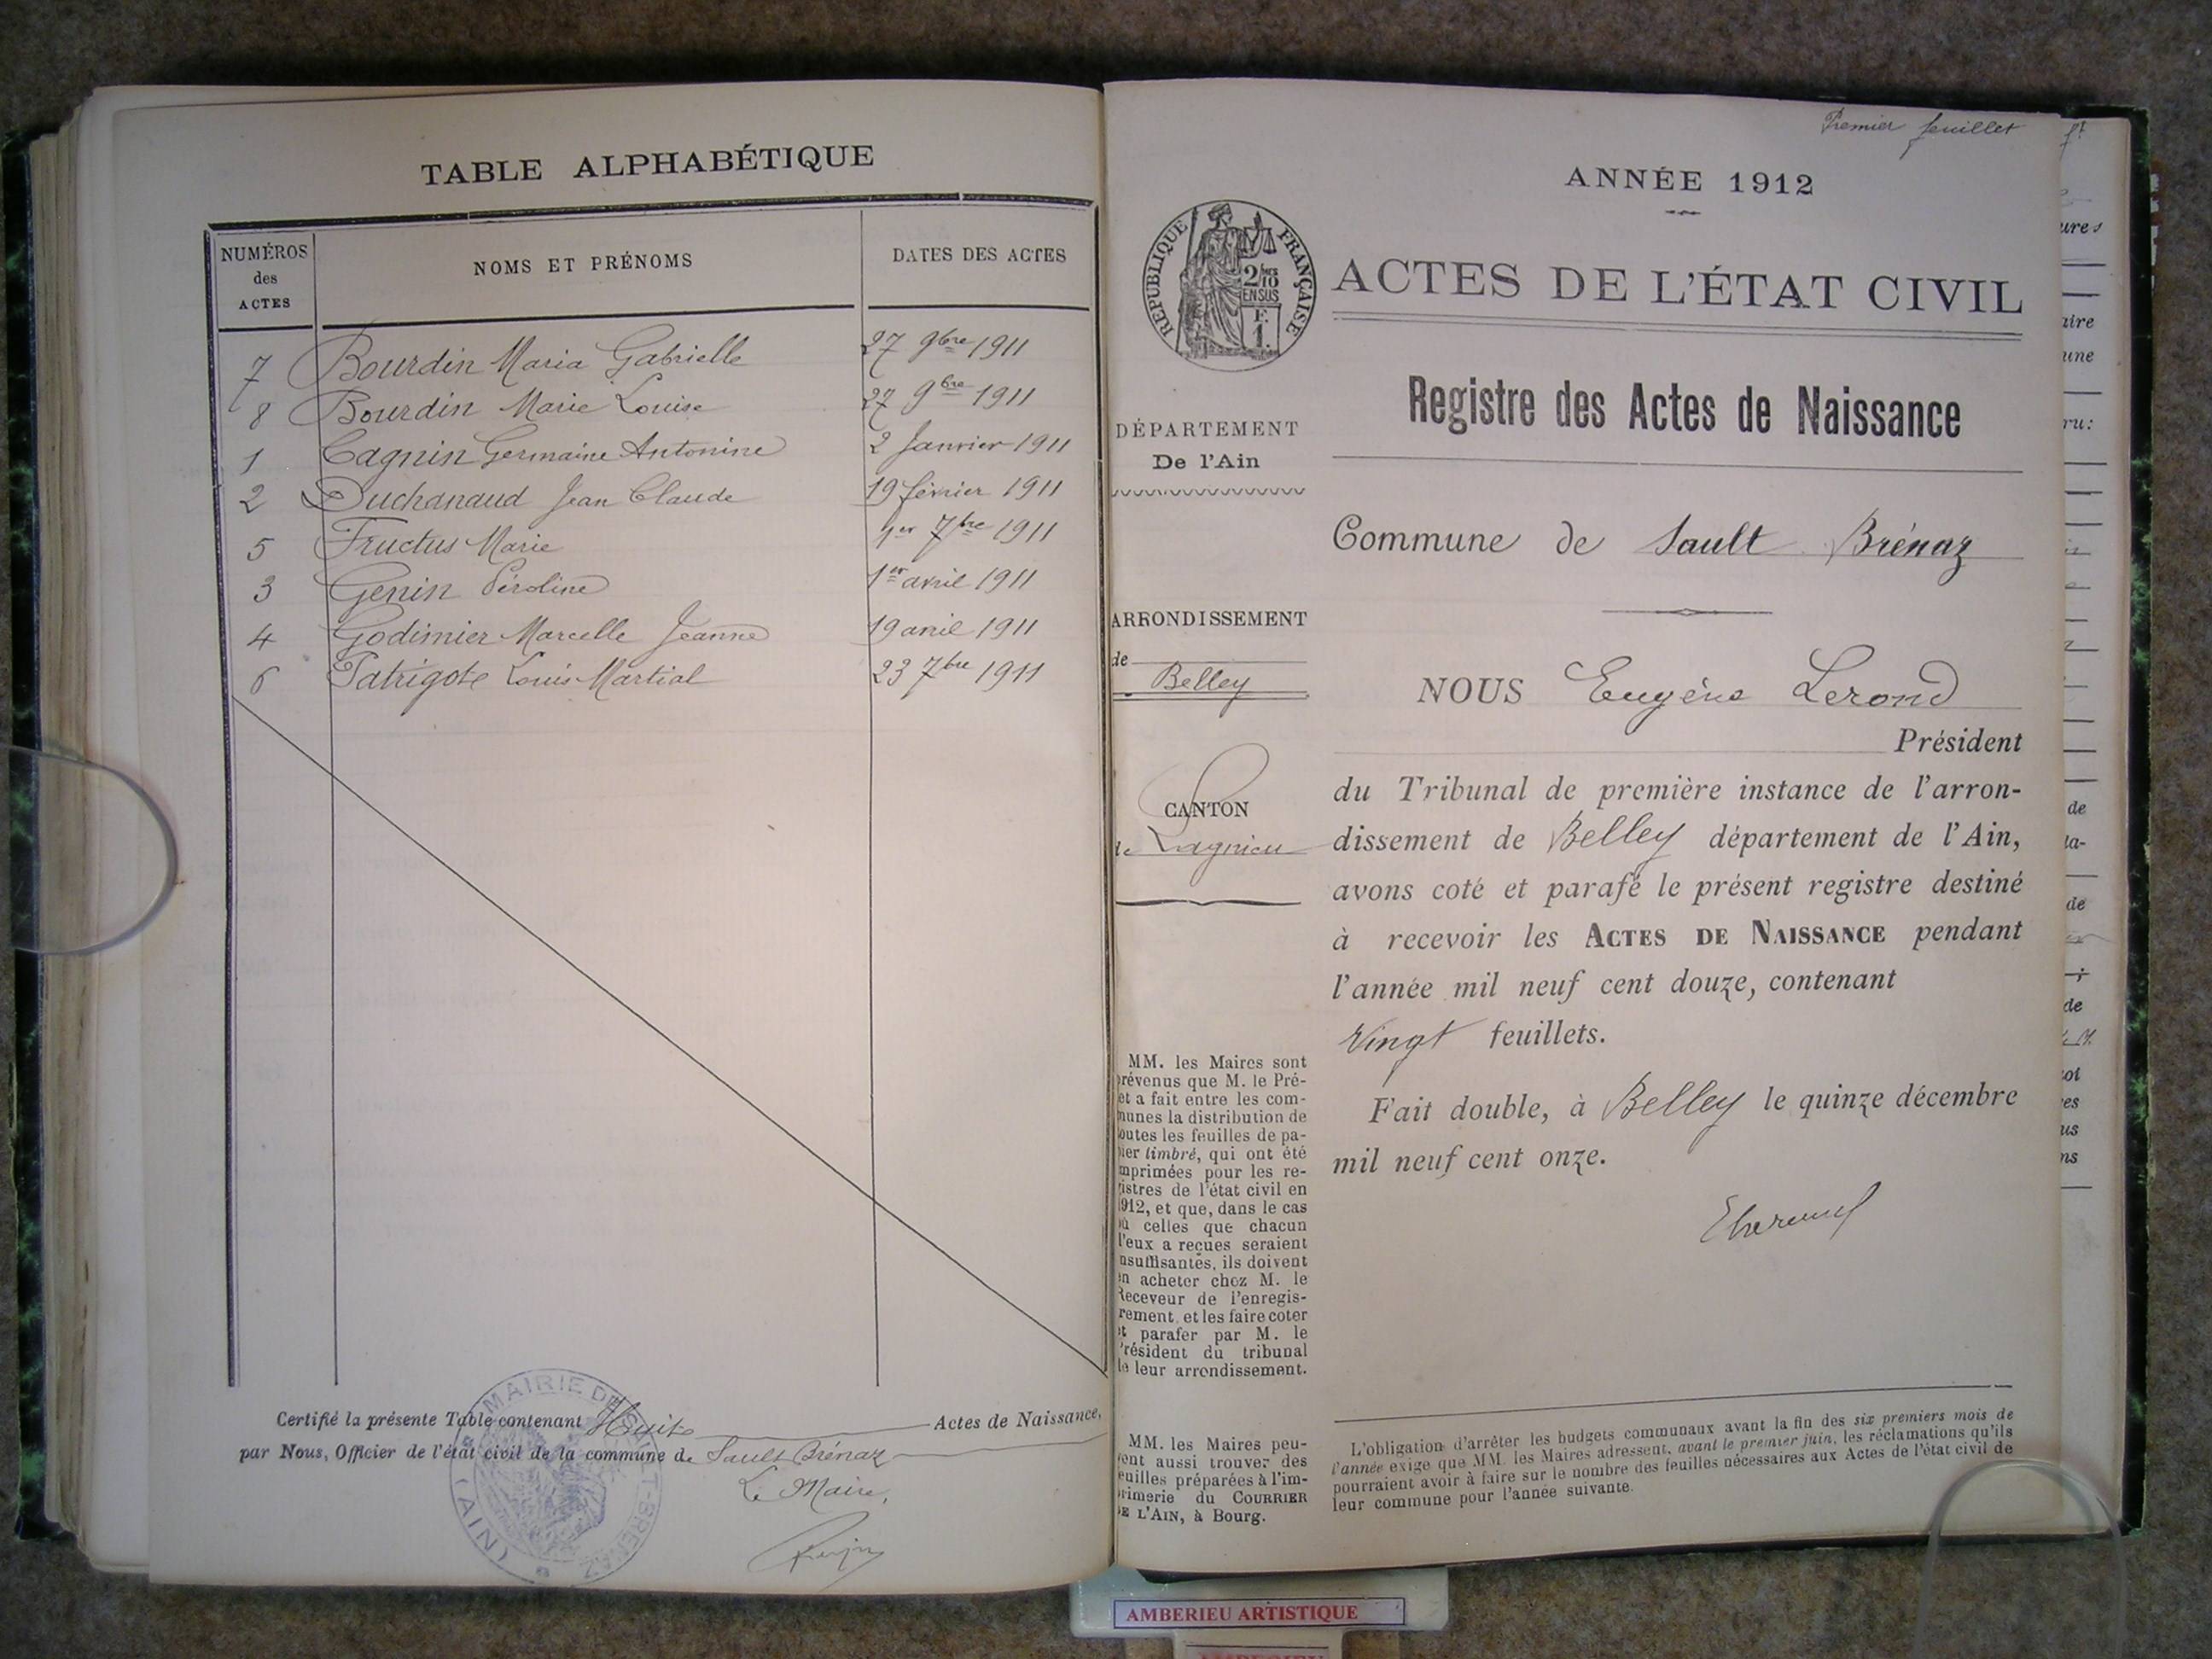 TABLE ALPHABÉTIQUE
NUMÉROS des ACTES
NOMS ET PRÉNOMS
DATES DES ACTES
7 Bourdin Maria Gabrielle 27 9bre 1911
8 Bourdin Marie Louise 27 9bre 1911
1 Cagnin Germaine Antonine 2 Janvier 1911
2 Duchanaud Jean Claude 19 février 1911
5 Fructus Marie 1er 7bre 1911
3 Genin Péroline 1er avril 1911
4 Godimier Marcelle Jeanne 19 avril 1911
6 Patrigote Louis Martial 23 7bre 1911
Certifié la présente Table contenant Huit Actes de Naissance,
par Nous, Officier de l'état civil de la commune de Sault Brénaz
Le Maire,
MAIRIE DE SAULT-BRENAZ
(AIN)
Premier feuillet
ANNÉE 1912
RÉPUBLIQUE FRANÇAISE
2/10
EN SUS
F.
1.
ACTES DE L'ÉTAT CIVIL
Registre des Actes de Naissance
DÉPARTEMENT
De l'Ain
Commune de Sault Brénaz
ARRONDISSEMENT
de
Belley
NOUS Eugène Lerond
Président
CANTON
de Lagnieu
du Tribunal de première instance de l'arron-
dissement de Belley département de l'Ain,
avons coté et parafé le présent registre destiné
à recevoir les ACTES DE NAISSANCE pendant
l'année mil neuf cent douze, contenant
Vingt feuillets.
Fait double, à Belley le quinze décembre
mil neuf cent onze.
MM. les Maires sont
prévenus que M. le Pré-
et a fait entre les com-
munes la distribution de
outes les feuilles de pa-
ier timbré, qui ont été
mprimées pour les re-
istres de l'état civil en
1912, et que, dans le cas
où celles que chacun
d'eux a reçues seraient
nsuffisantes, ils doivent
en acheter chez M. le
Receveur de l'enregis-
rement, et les faire coter
et parafer par M. le
Président du tribunal
de leur arrondissement.
MM. les Maires peu-
vent aussi trouver des
euilles préparées à l'im-
rimerie du COURRIER
DE L'AIN, à Bourg.
L'obligation d'arrêter les budgets communaux avant la fin des six premiers mois de
l'année exige que MM. les Maires adressent, avant le premier juin, les réclamations qu'ils
pourraient avoir à faire sur le nombre des feuilles nécessaires aux Actes de l'état civil de
leur commune pour l'année suivante.
AMBERIEU ARTISTIQUE